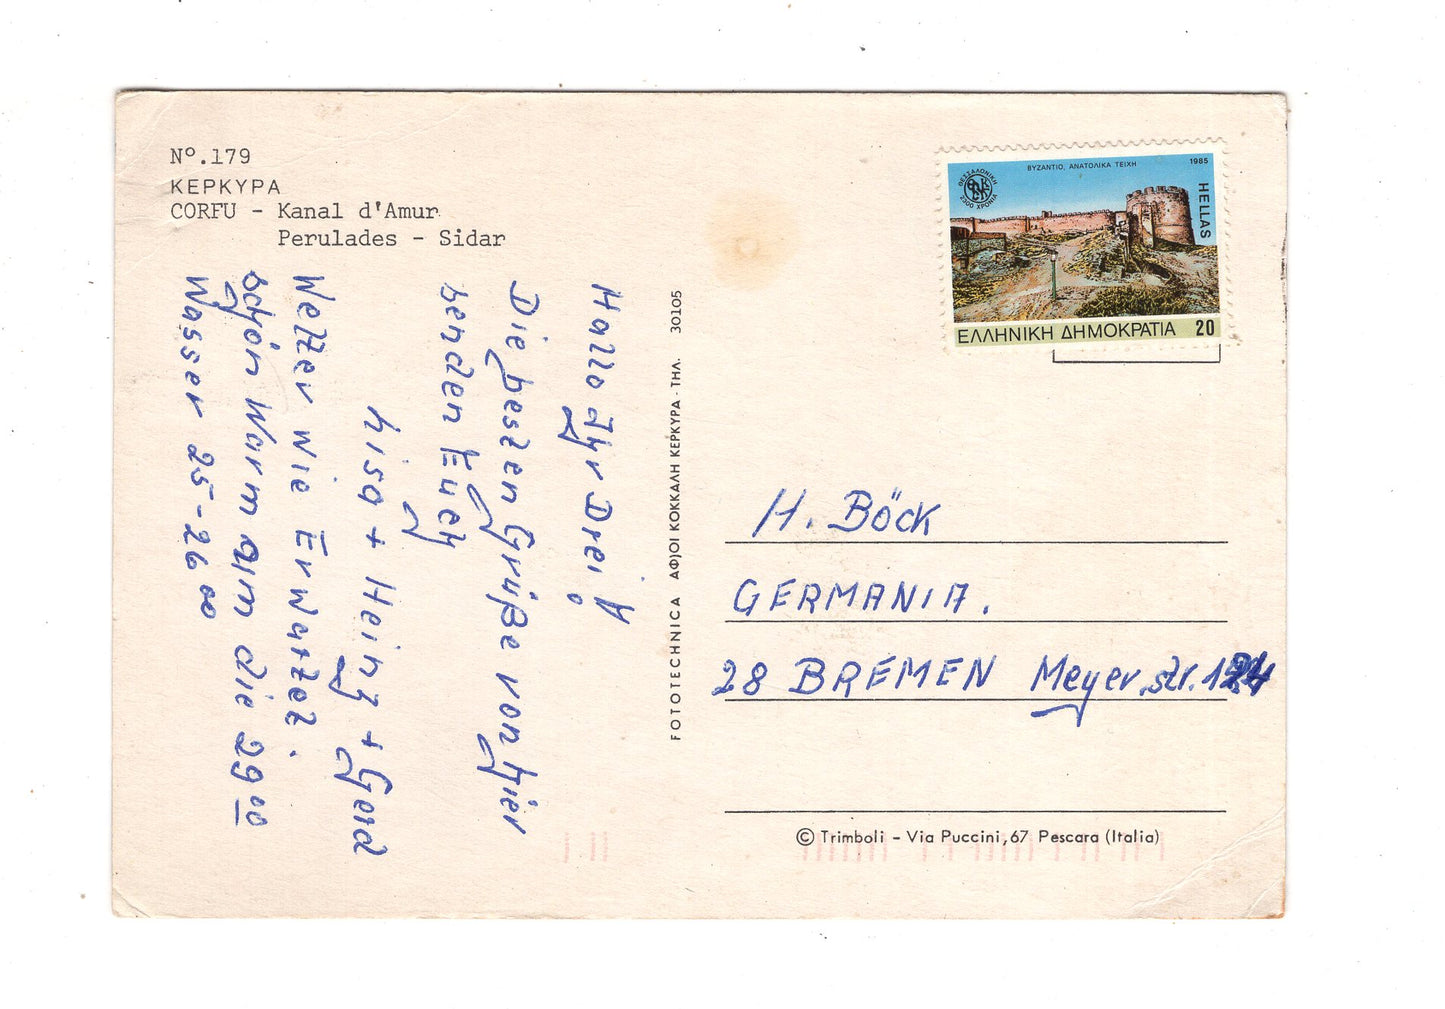 Nº.179
ΚΕΡΚΥΡΑ
CORFU - Kanal d'Amur
Perulades - Sidar
Hallo Ihr Drei!
Die besten Grüße von hier
senden Euch
Lisa + Heinz + Gerd
Wetter wie Erwartet.
schön Warm um die 29⁰⁰
Wasser 25-26⁰⁰
FOTOTECHNICA ΑΦ)ΟΙ ΚΟΚΚΑΛΗ ΚΕΡΚΥΡΑ - ΤΗΛ. 30105
ΒΥΖΑΝΤΙΟ, ΑΝΑΤΟΛΙΚΑ ΤΕΙΧΗ 1985
ΘΕΣΣΑΛΟΝΙΚΗ
2300 ΧΡΟΝΙΑ
HELLAS
ΕΛΛΗΝΙΚΗ ΔΗΜΟΚΡΑΤΙΑ 20
H. Böck
GERMANIA.
28 BREMEN Meyer.str.
© Trimboli - Via Puccini, 67 Pescara (Italia)